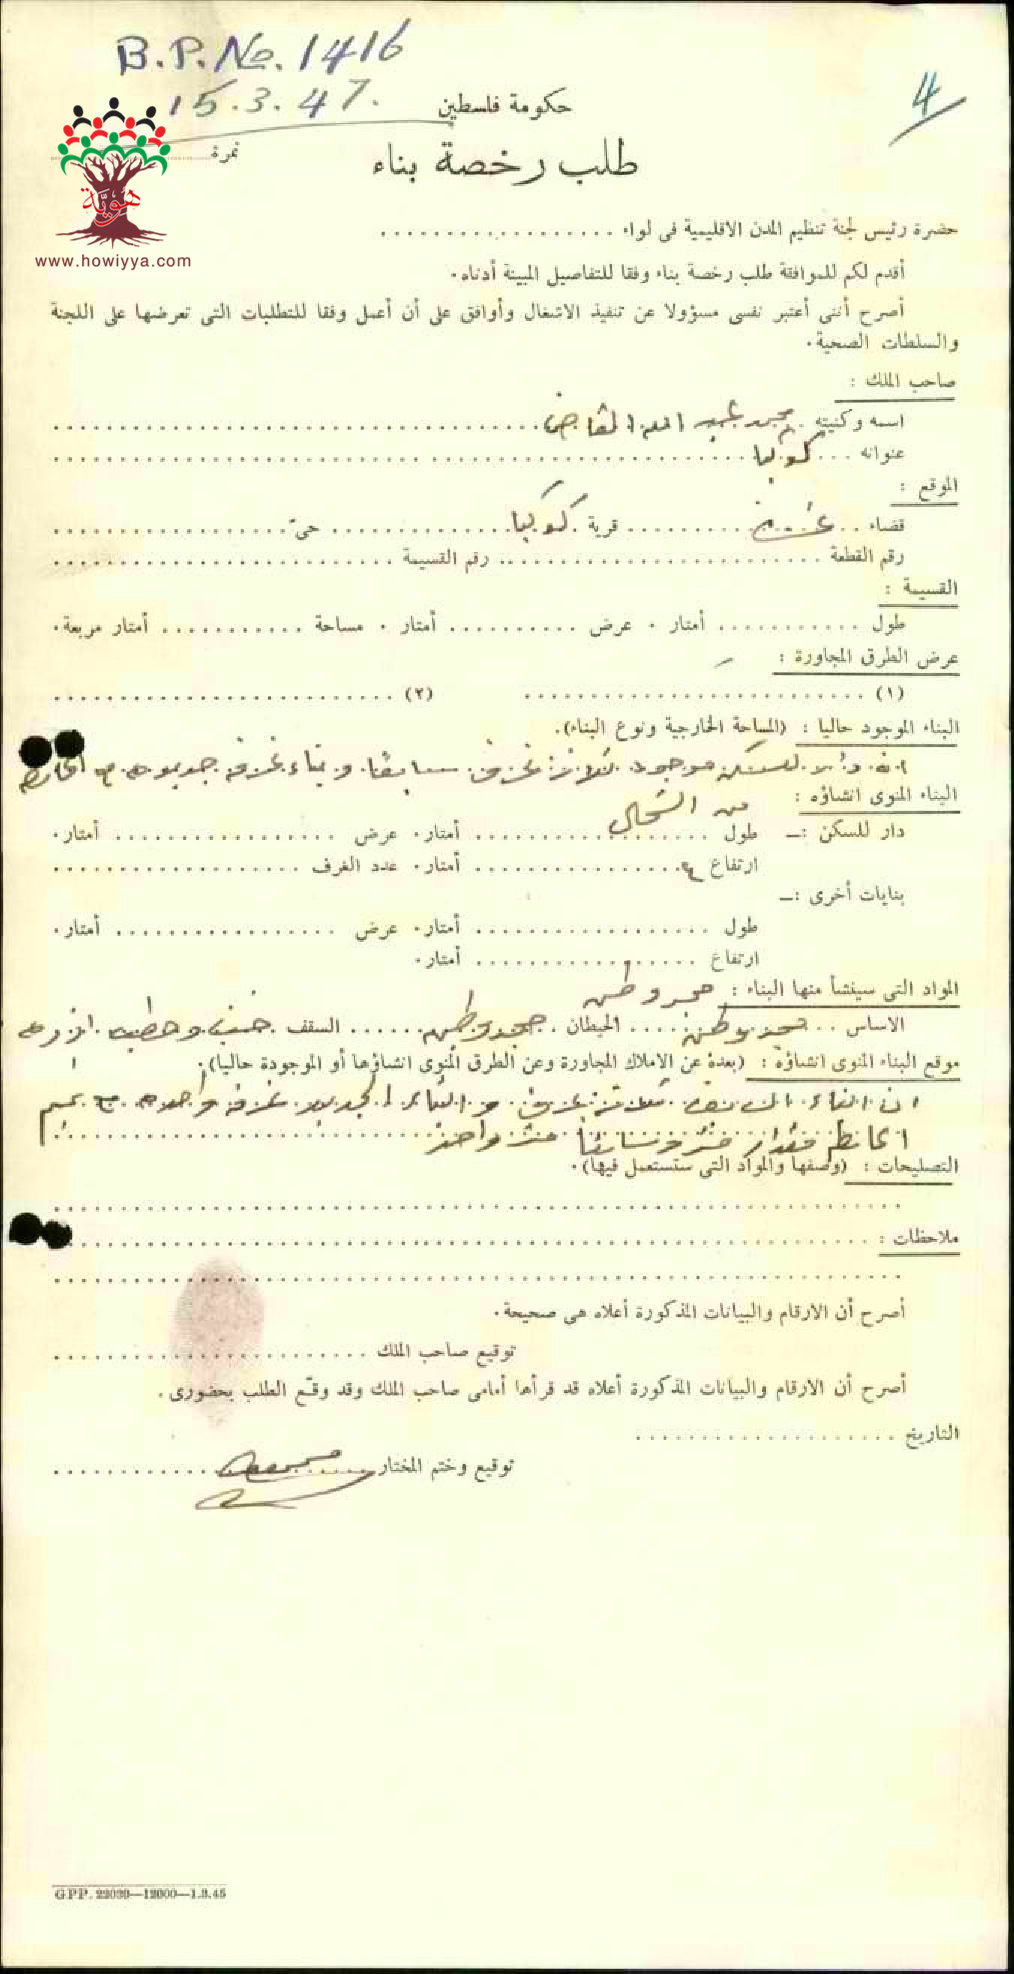 B.P.No. 1416
15.3.47.
4
حكومة فلسطين
نمرة
طلب رخصة بناء
هويّة
www.howiyya.com
حضرة رئيس لجنة تنظيم المدن الاقليمية فى لواء ..................
أقدم لكم للموافقة طلب رخصة بناء وفقا للتفاصيل المبينة أدناه.
أصرح أننى أعتبر نفسى مسؤولا عن تنفيذ الاشغال وأوافق على أن أعمل وفقا للمتطلبات التى تعرضها على اللجنة
والسلطات الصحية.
صاحب الملك :
اسمه وكنيته محمد عبد الله القاضي
عنوانه كوكبا
الموقع :
قضاء غزة قرية كوكبا حىّ
رقم القطعة رقم القسيمة
القسيمة :
طول أمتار . عرض أمتار . مساحة أمتار مربعة.
عرض الطرق المجاورة : -
(١) (٢)
البناء الموجود حاليا : (المساحة الخارجية ونوع البناء).
للسكن موجود ثلاث غرف سابقا وبناء غرفه جديده الحائط
البناء المنوى انشاؤه : من الشمال
دار للسكن :— طول أمتار. عرض أمتار.
ارتفاع أمتار. عدد الغرف
بنايات أخرى :—
طول أمتار. عرض أمتار.
ارتفاع أمتار.
المواد التى سينشأ منها البناء : حجر وطين
الاساس حجر وطين الحيطان حجر وطين السقف خشب وحطب
موقع البناء المنوى انشاؤه : (بعدة عن الاملاك المجاورة وعن الطرق المنوى انشاؤها أو الموجودة حاليا).
ان البناء السابق ثلاث غرف و البناء الجديد غرفه واحده
الحائط مقدار متر واحد
التصليحات : (وصفها والمواد التى ستستعمل فيها).
ملاحظات :
أصرح أن الارقام والبيانات المذكورة أعلاه هى صحيحة.
توقيع صاحب الملك
أصرح أن الارقام والبيانات المذكورة أعلاه قد قرأها أمامى صاحب الملك وقد وقّع الطلب بحضورى.
التاريخ
توقيع وختم المختار
GPP. 22039—12000—1.3.45